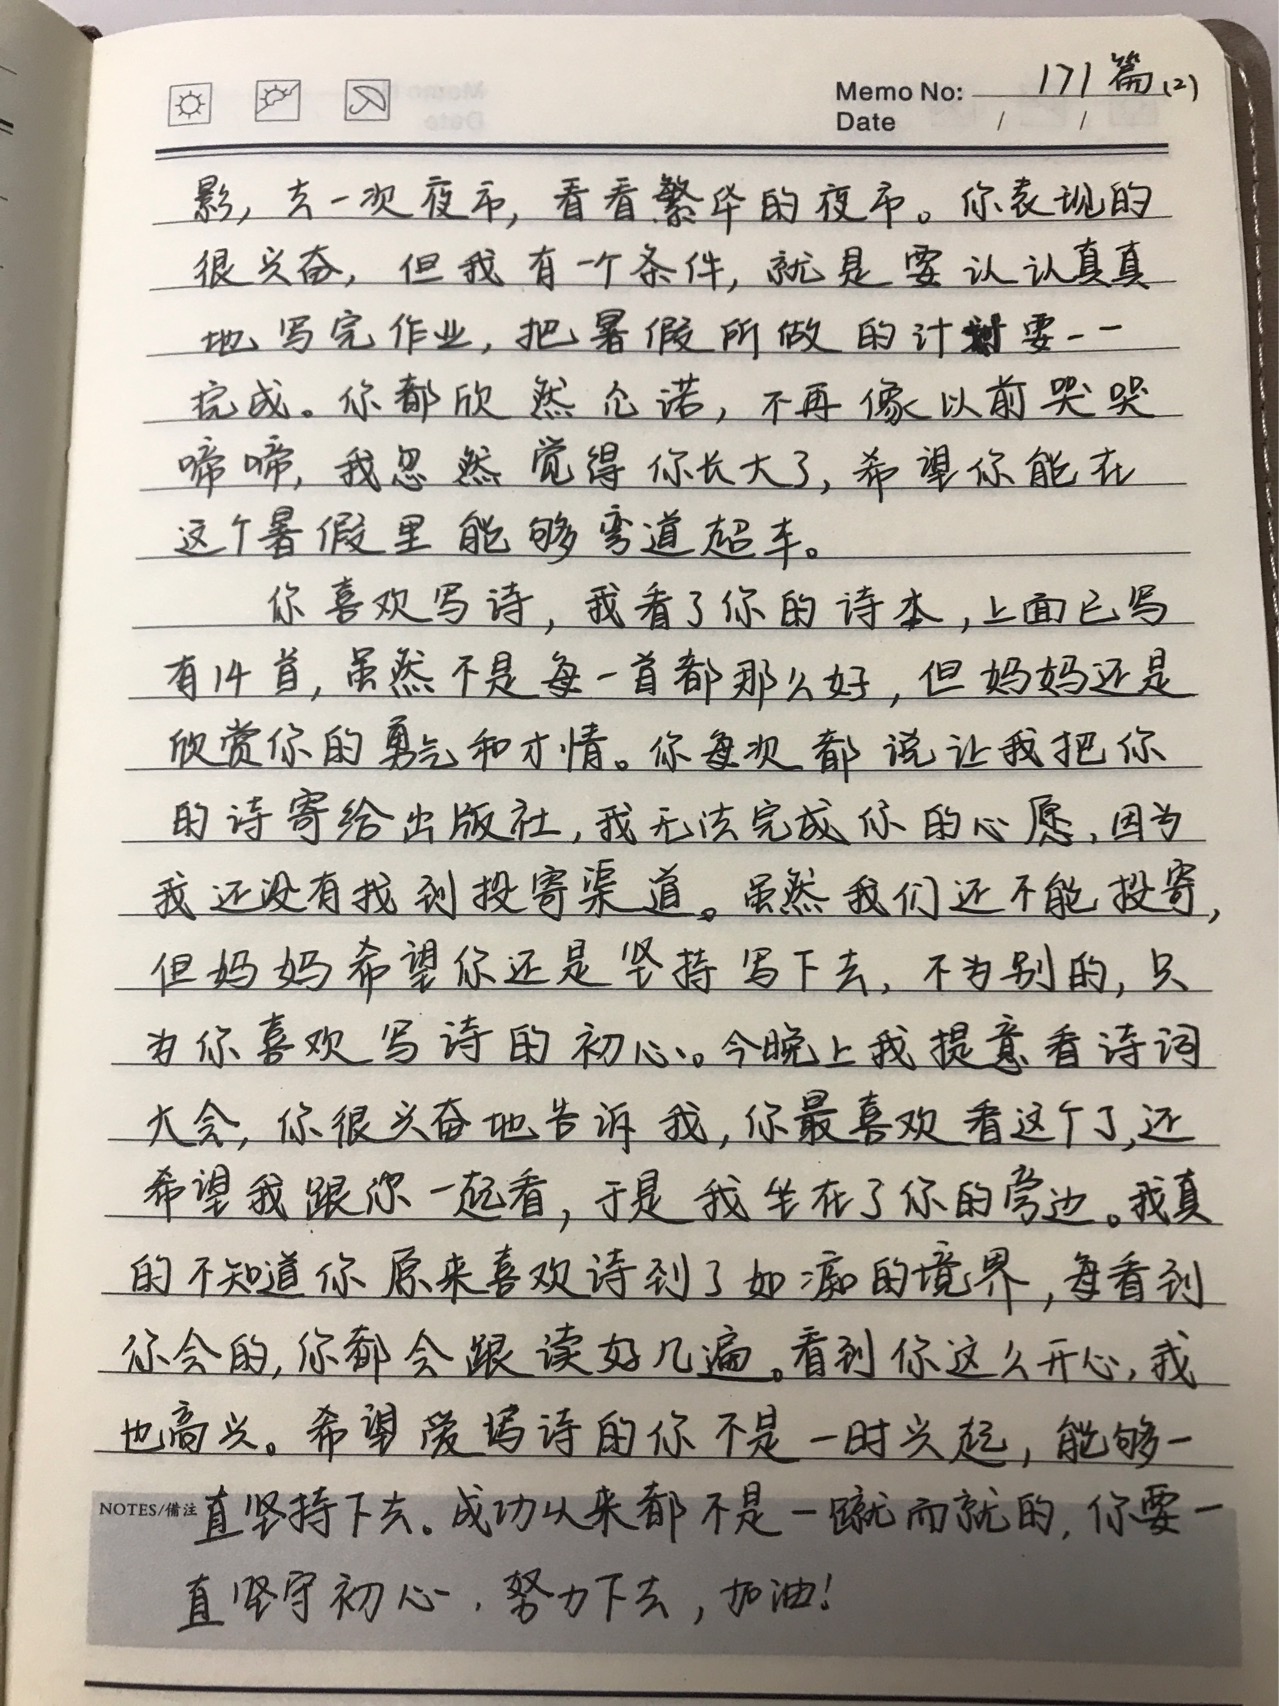 171篇(2)
Memo No:
Date / /
影，去一次夜市，看看繁华的夜市。你表现的
很兴奋，但我有一个条件，就是要认认真真
地写完作业，把暑假所做的计划要一一
完成。你都欣然允诺，不再像以前哭哭
啼啼，我忽然觉得你长大了，希望你能在
这个暑假里能够弯道超车。
你喜欢写诗，我看了你的诗本，上面已写
有14首，虽然不是每一首都那么好，但妈妈还是
欣赏你的勇气和才情。你每次都说让我把你
的诗寄给出版社，我无法完成你的心愿，因为
我还没有找到投寄渠道。虽然我们还不能投寄，
但妈妈希望你还是坚持写下去，不为别的，只
为你喜欢写诗的初心。今晚上我提意看诗词
大会，你很兴奋地告诉我，你最喜欢看这个了，还
希望我跟你一起看，于是我坐在了你的旁边。我真
的不知道你原来喜欢诗到了如痴的境界，每看到
你会的，你都会跟读好几遍。看到你这么开心，我
也高兴。希望爱写诗的你不是一时兴起，能够一
NOTES/備注 直坚持下去。成功从来都不是一蹴而就的，你要一
直坚守初心，努力下去，加油！